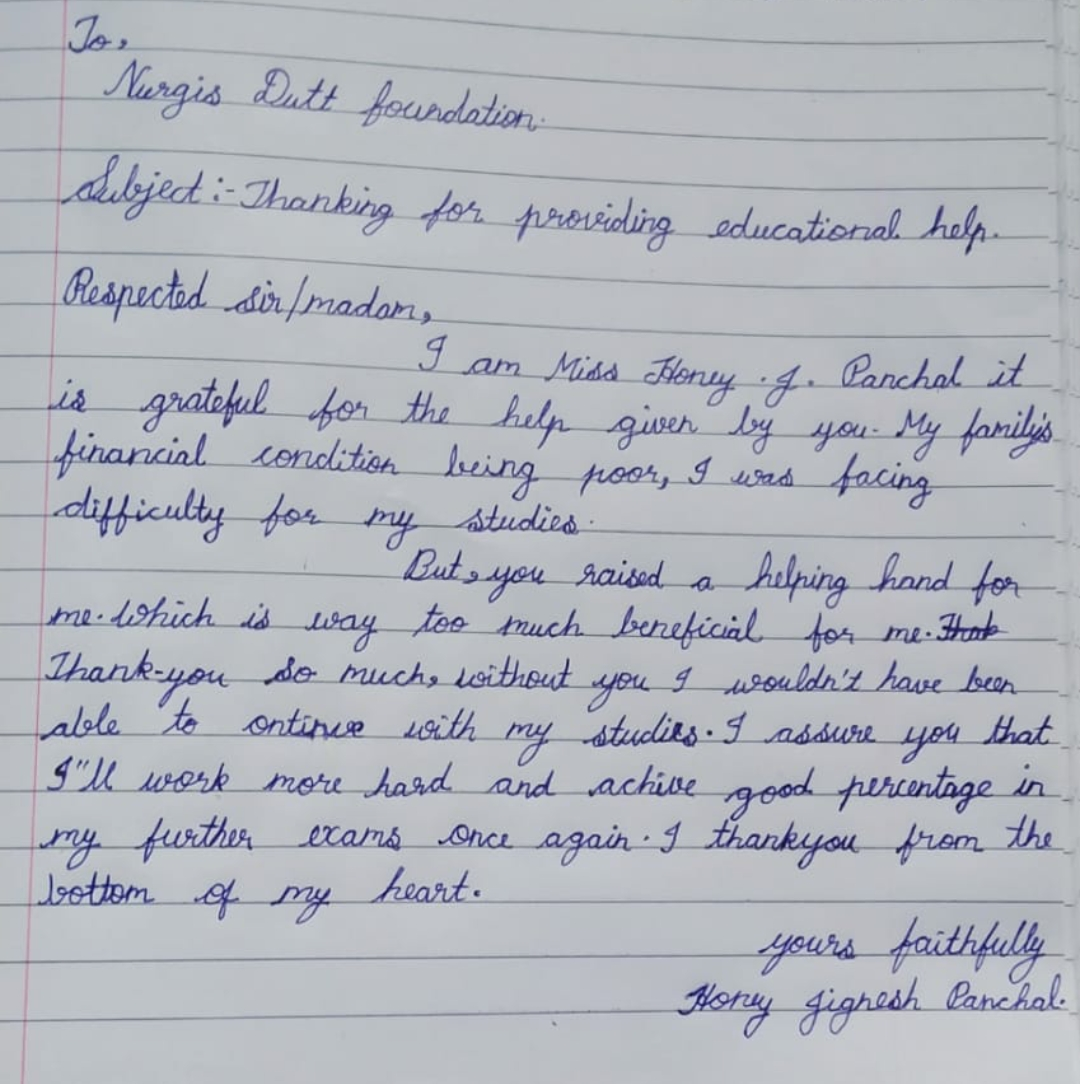 To,
Nurgis Dutt foundation.
Subject :- Thanking for providing educational help.
Respected sir/madam,
I am Miss Honey . J. Panchal it
is grateful for the help given by you. My family's
financial condition being poor, I was facing
difficulty for my studies.
But, you raised a helping hand for
me. Which is way too much beneficial for me.
Thank-you so much, without you I wouldn't have been
able to ontinue with my studies. I assure you that
I"ll work more hard and achive good percentage in
my further exams once again. I thankyou from the
bottom of my heart.
yours faithfully
Honey Jignesh Panchal.